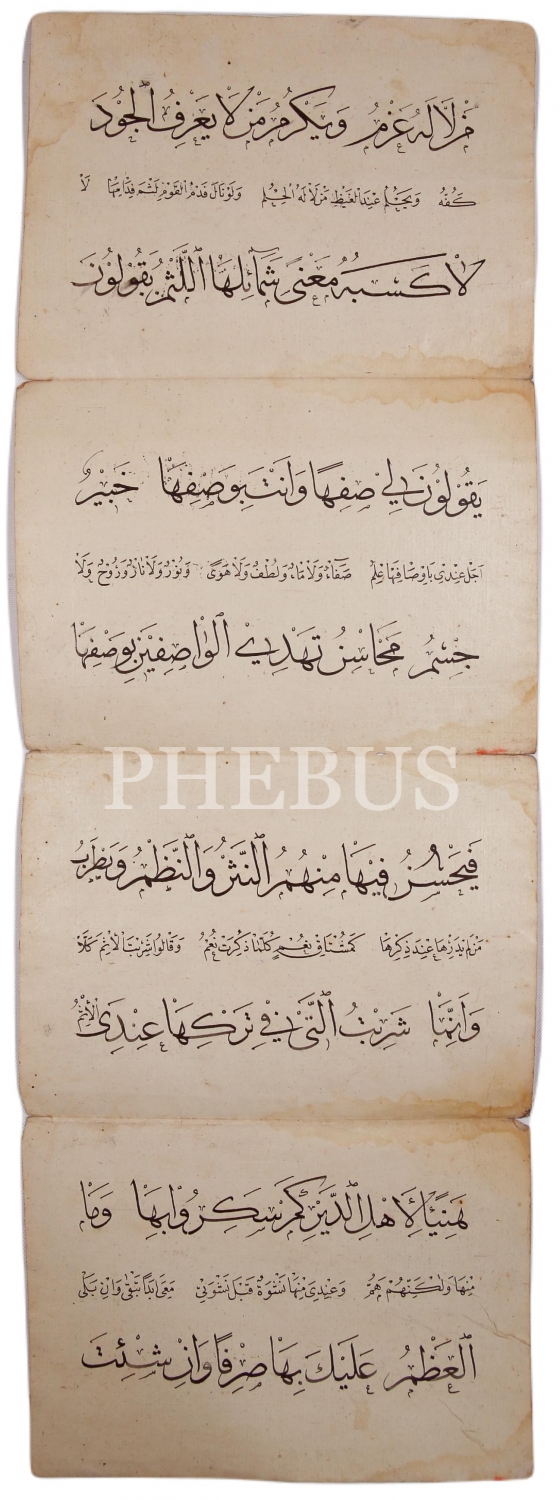 مَنْ لَا لَهُ عَزْمُ وَيَكْرُمُ مَنْ لَا يَعْرِفُ الْجُودَ
كَفُّهُ وَيَحْلُمُ عِنْدَ الْغَيْظِ مَنْ لَا لَهُ الْحِلْمُ وَلَوْ نَالَ فَدْمُ الْقَوْمِ لَثْمَ فِدَامِهَا لَا
لَاكْسَبَهُ مَعْنَى شَمَائِلِهَا اللَّثْمُ يَقُولُونَ
يَقُولُونَ لِي صِفْهَا وَأَنْتَ بِوَصْفِهَا خَبِيرٌ
اَجَلْ عِنْدِي بِاَوْصَافِهَا عِلْمُ صَفَاءٌ وَلَا مَاءٌ وَلُطْفٌ وَلَا هَوًى وَنُورٌ وَلَا نَارٌ وَرُوحٌ وَلَا
جِسْمُ مَحَاسِنُ تَهْدِي الْوَاصِفِينَ بِوَصْفِهَا
PHEBUS
فَيَحْسُنُ فِيهَا مِنْهُمُ النَّثْرُ وَالنَّظْمُ وَيَطْرَبُ
مَنْ لَمْ يَدْرِهَا عِنْدَ ذِكْرِهَا كَمُشْتَاقِ نُعْمٍ كُلَّمَا ذُكِرَتْ نُعْمُ وَقَالُوا شَرِبْتَ الْاِثْمَ كَلَّا
وَاِنَّمَا شَرِبْتُ الَّتِي فِي تَرْكِهَا عِنْدِيَ الْاِثْمُ
هَنِيئًا لِاَهْلِ الدَّيْرِ كَمْ سَكِرُوا بِهَا وَمَا
مِنْهَا وَلَكِنَّهُمْ هَمُّ وَعِنْدِي مِنْهَا نَشْوَةٌ قَبْلَ نَشْوَتِي مَعِي اَبَدًا تَبْقَى وَاِنْ بَلَى
الْعَظْمُ عَلَيْكَ بِهَا صِرْفًا وَاِنْ شِئْتَ